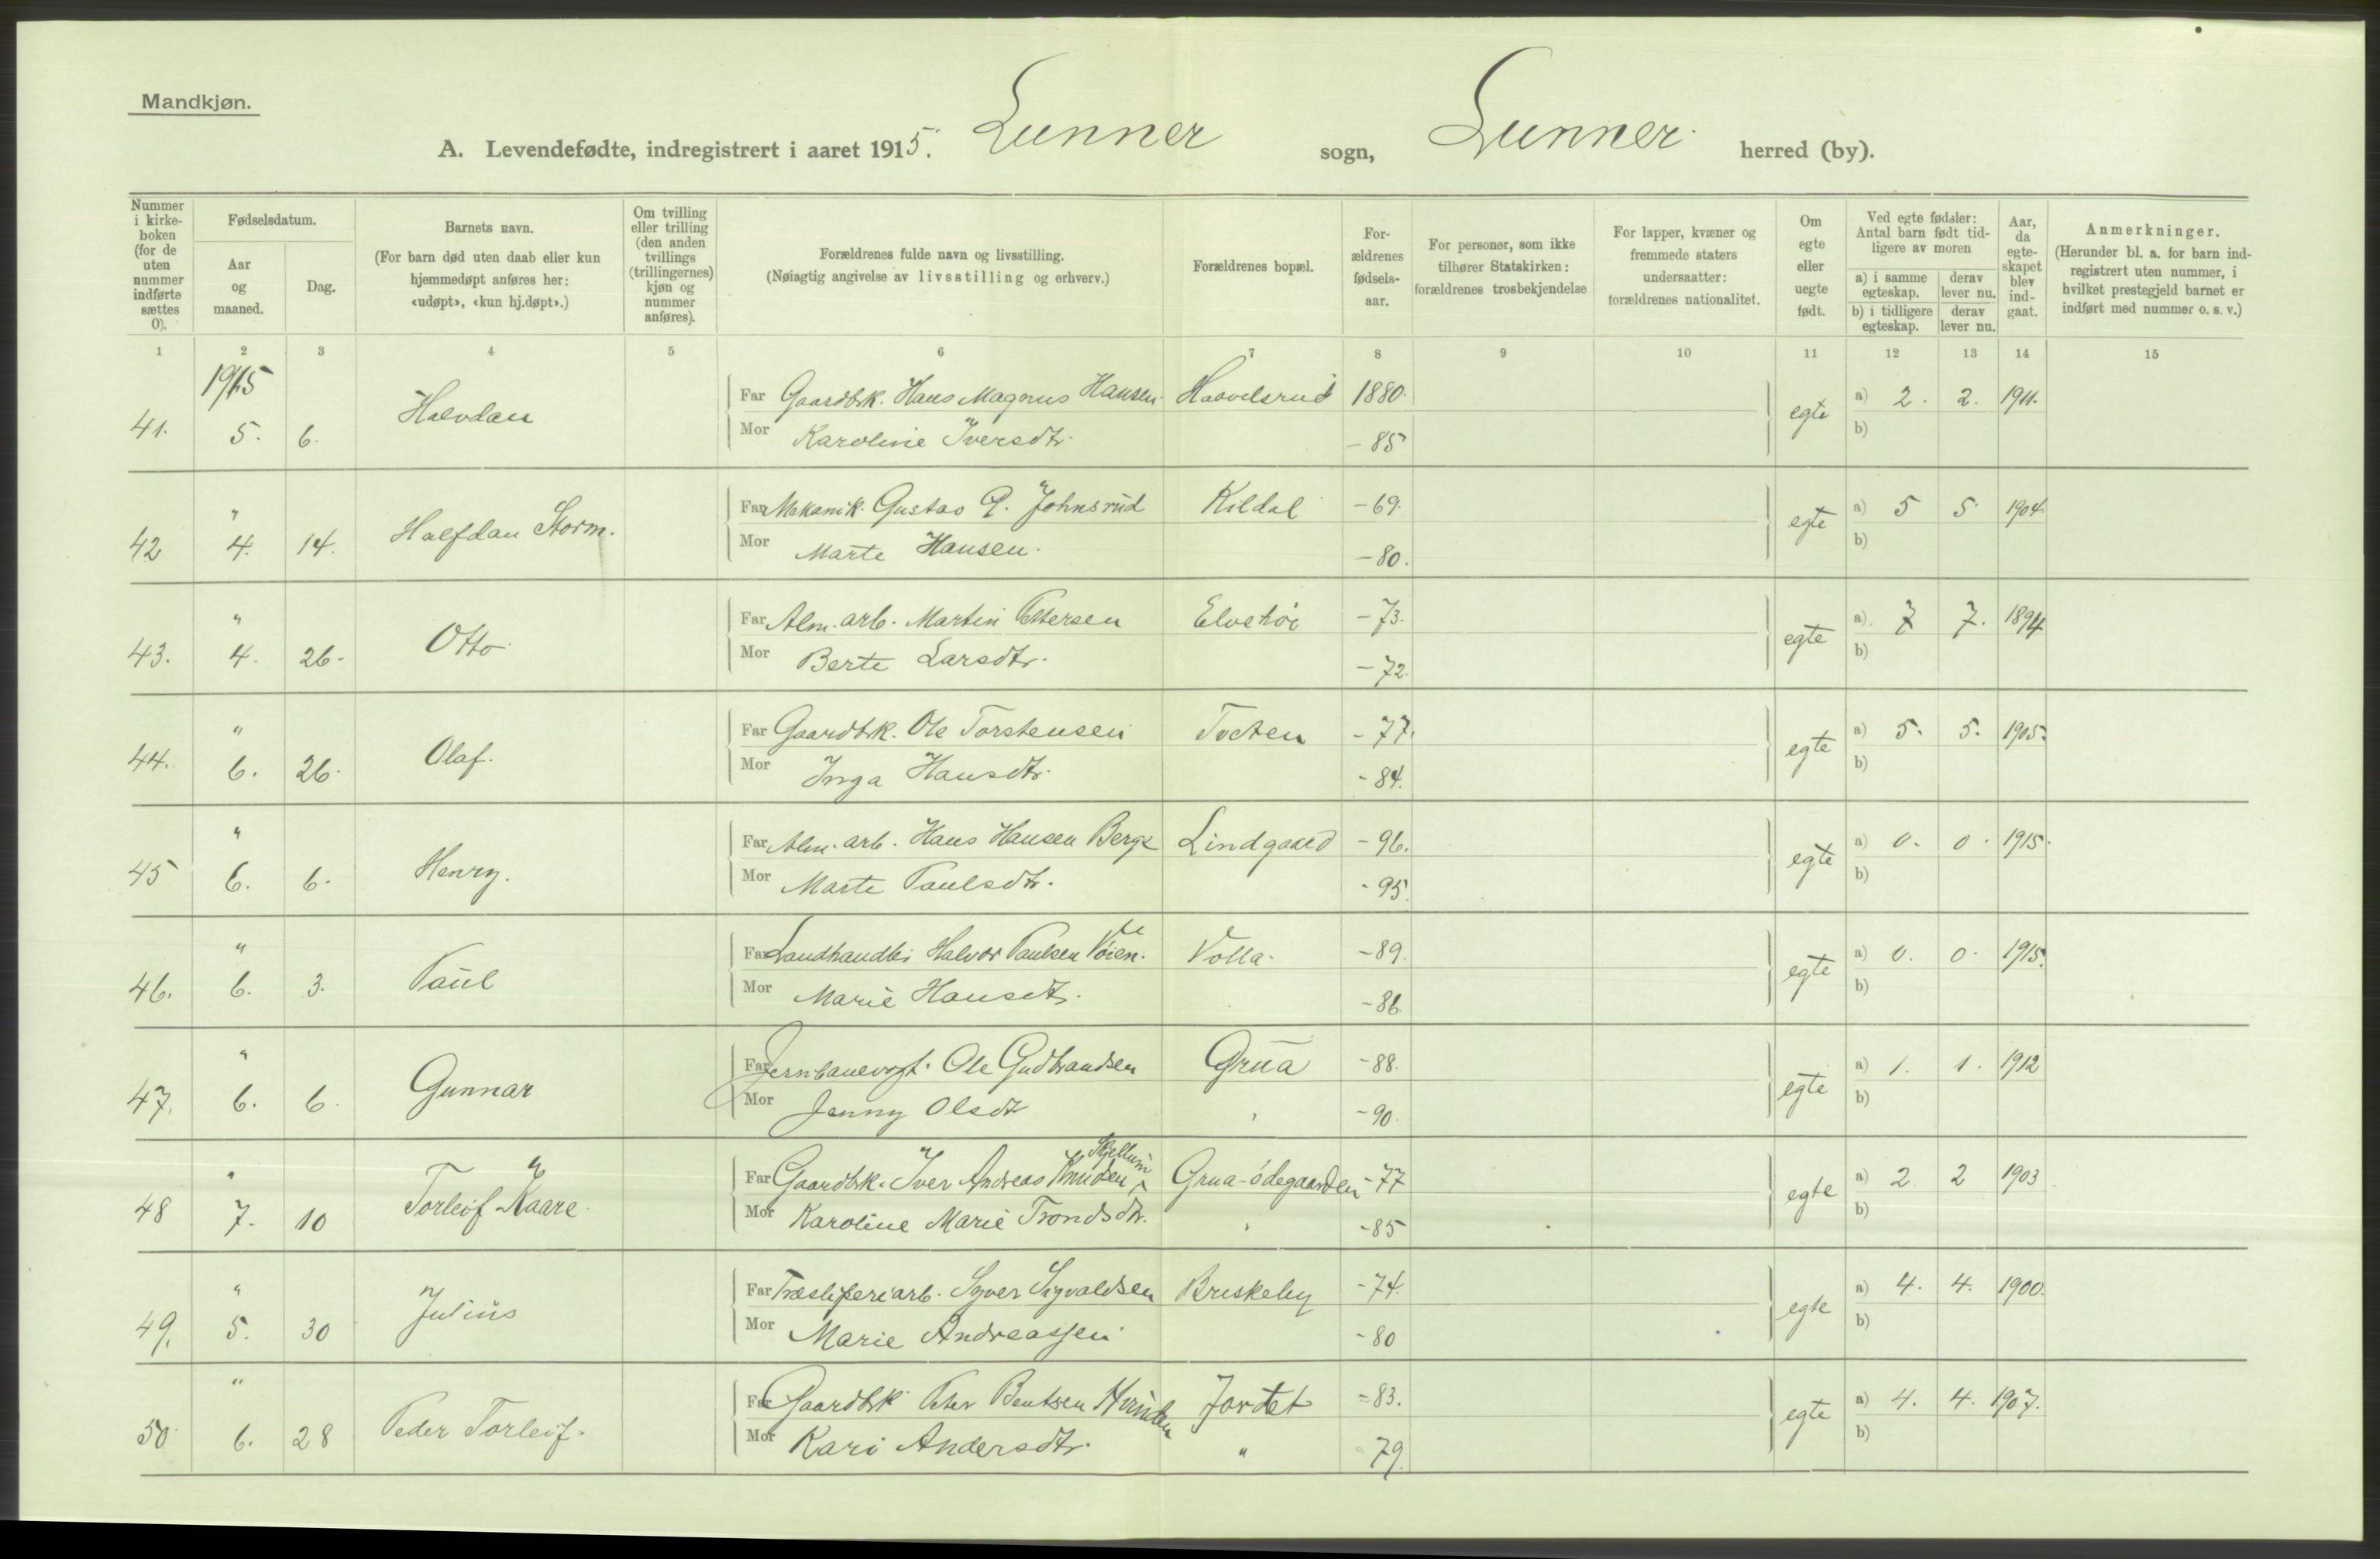 Mandkjøn.
A. Levendefødte, indregistrert i aaret 1915. Lunner sogn, Lunner herred (by).
Nummer i kirkeboken (for de uten nummer indførte sættes 0).
Fødselsdatum.
Aar og maaned.
Dag.
Barnets navn.
(For barn død uten daab eller kun hjemmedøpt anføres her: «udøpt», «kun hj.døpt».)
Om tvilling eller trilling (den anden tvillings (trillingernes) kjøn og nummer anføres).
Forældrenes fulde navn og livsstilling.
(Nøiagtig angivelse av livsstilling og erhverv.)
Forældrenes bopæl.
Forældrenes fødselsaar.
For personer, som ikke tilhører Statskirken: forældrenes trosbekjendelse
For lapper, kvæner og fremmede staters undersaatter: forældrenes nationalitet.
Om egte eller uegte født.
Ved egte fødsler: Antal barn født tidligere av moren
a) i samme egteskap. derav lever nu.
b) i tidligere egteskap. derav lever nu.
Aar, da egteskapet blev indgaat.
Anmerkninger.
(Herunder bl. a. for barn indregistrert uten nummer, i hvilket prestegjeld barnet er indført med nummer o. s. v.)
1 2 3 4 5 6 7 8 9 10 11 12 13 14 15
1915
41. 5. 6. Halvdan Far Gaardbk. Hans Magnus Hansen. 1880. egte a) 2. 2. 1911.
Mor Karoline Iversdtr. - 85 b)
42 " 4. 14. Halfdan Storm. Far Mekanik. Gustav P. Johnsrud Kildal - 69. egte a) 5 5. 1904.
Mor Marte Hansen. - 80. b)
43. " 4. 26. Otto Far Alm. arb. Martin Pettersen - 73. egte a) 7 7. 1894
Mor Berte Larsdtr. - 72. b)
44. " 6. 26. Olaf. Far Gaardbk. Ole Torstensen Tveten - 77. egte a) 5. 5. 1905.
Mor Inga Hansdtr. - 84. b)
45 " 6. 6. Henry. Far Alm. arb. Hans Hansen Berge Lindgaard - 96. egte a) 0. 0. 1915.
Mor Marte Paulsdtr. - 95. b)
46. " 6. 3. Paul Far Landhandler Halvor Paulsen Volla. - 89. egte a) 0. 0. 1915.
Mor Marie Hansdtr. - 86. b)
47. " 6. 6. Gunnar Far Jernbanevogt. Ole Gudbrandsen Grua - 88. egte a) 1. 1. 1912
Mor Jenny Olsdtr " - 90. b)
48 " 7. 10 Torleif Kaare. Far Gaardbk. Iver Andreas Knudsen Skjellum Grua-ødegaarden - 77 egte a) 2 2 1903
Mor Karoline Marie Trondsdtr. " - 85 b)
49. " 5. 30 Julius Far Træsliperiarb. Syver Sigvaldsen Briskeby - 74. egte a) 4. 4. 1900.
Mor Marie Andreassen - 80 b)
50 " 6. 28 Peder Torleif. Far Gaardbk Peter Bentsen Hvinden Jordet - 83. egte a) 4. 4. 1907.
Mor Kari Andersdtr. " 79. b)